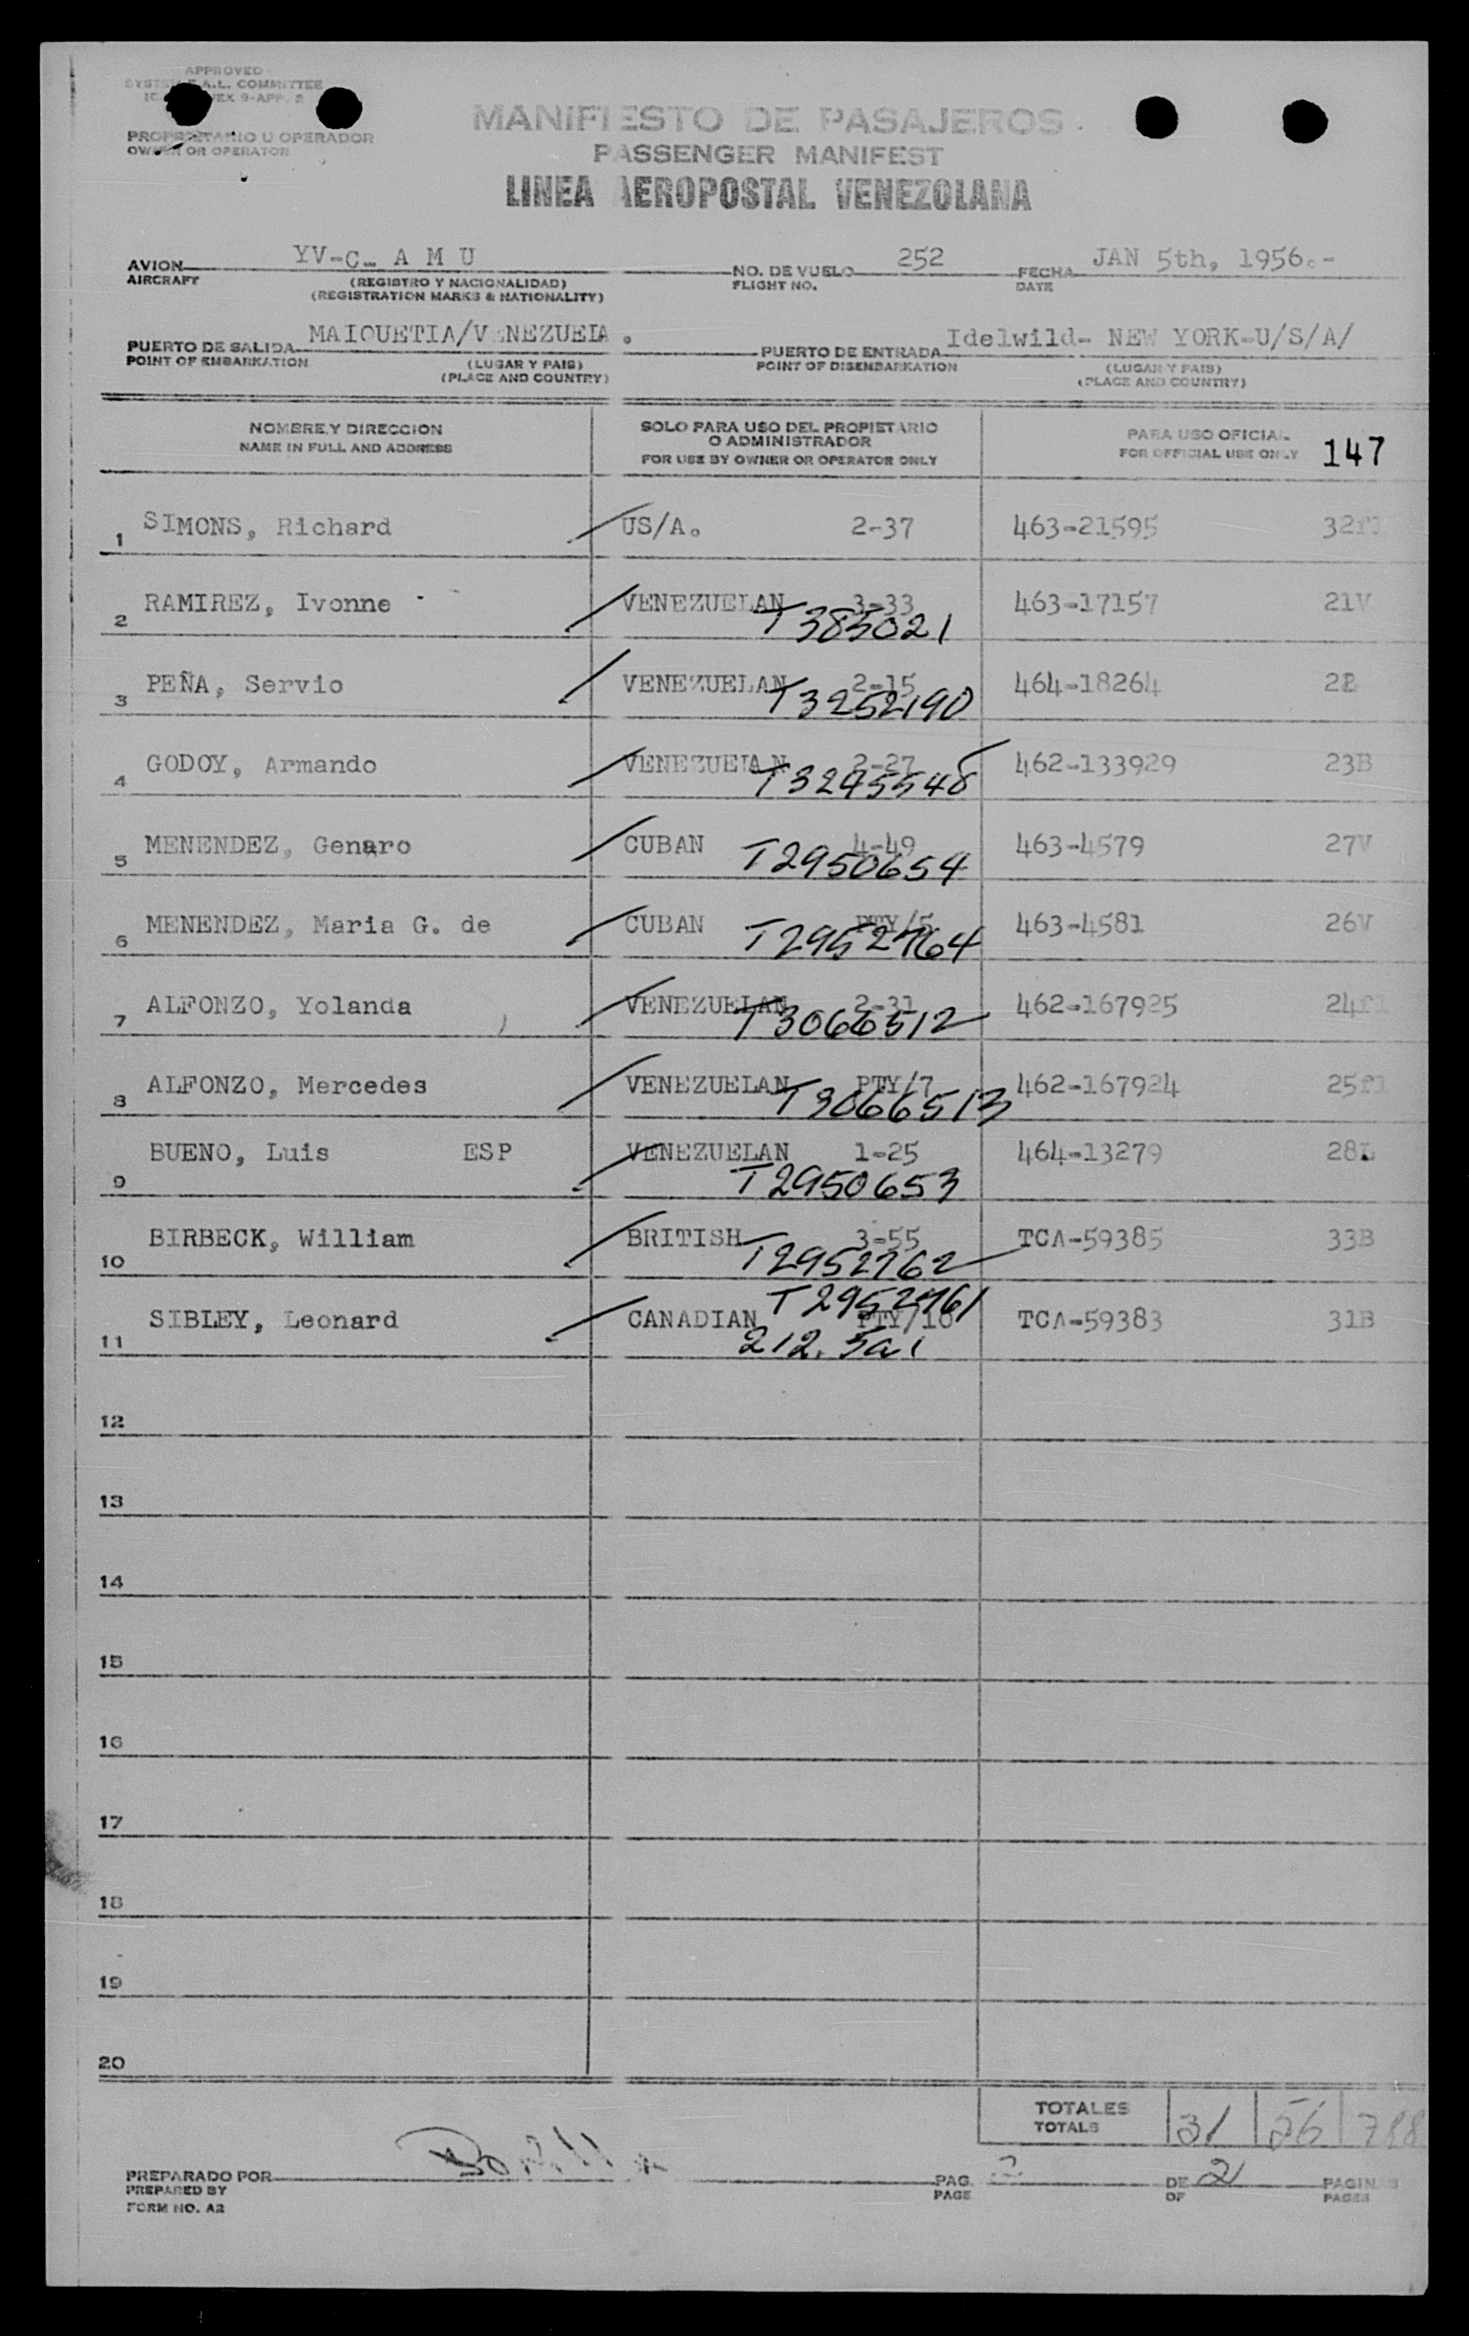 APPROVED
MANIFIESTO DE PASAJEROS
PASSENGER MANIFEST
PROPIETARIO U OPERADOR
OWNER OR OPERATOR
LINEA AEROPOSTAL VENEZOLANA
AVION YV-C- A M U NO. DE VUELO 252 FECHA JAN 5th, 1956.-
AIRCRAFT (REGISTRO Y NACIONALIDAD) FLIGHT NO. DATE
(REGISTRATION MARKS & NATIONALITY)
PUERTO DE SALIDA MAIQUETIA/VENEZUELA. PUERTO DE ENTRADA Idelwild- NEW YORK-U/S/A/
POINT OF EMBARKATION (LUGAR Y PAIS) POINT OF DISEMBARKATION (LUGAR Y PAIS)
(PLACE AND COUNTRY) (PLACE AND COUNTRY)
NOMBRE Y DIRECCION SOLO PARA USO DEL PROPIETARIO O ADMINISTRADOR PARA USO OFICIAL
NAME IN FULL AND ADDRESS FOR USE BY OWNER OR OPERATOR ONLY FOR OFFICIAL USE ONLY 147
1 SIMONS, Richard US/A. 2-37 463-21595
2 RAMIREZ, Ivonne VENEZUELAN 3-33 463-17157 21V
T383021
3 PEÑA, Servio VENEZUELAN 2-15 464-18264
T3252190
4 GODOY, Armando VENEZUELAN 2-27 462-133929 23B
T3295548
5 MENENDEZ, Genaro CUBAN 4-49 463-4579 27V
T2950654
6 MENENDEZ, Maria G. de CUBAN PTY/5 463-4581 26V
T2952764
7 ALFONZO, Yolanda VENEZUELAN 2-31 462-167925
T3066512
8 ALFONZO, Mercedes VENEZUELAN PTY/7 462-167924
T3066513
9 BUENO, Luis ESP VENEZUELAN 1-25 464-13279
T2950653
10 BIRBECK, William BRITISH 3-55 TCA-59385 33B
T2952762
T2952761
11 SIBLEY, Leonard CANADIAN PTY/10 TCA-59383 31B
12
13
14
15
16
17
18
19
20
TOTALES
TOTALS 31 56 788
PREPARADO POR PAG. 2 DE 2 PAGINAS
PREPARED BY PAGE OF PAGES
FORM NO. A2